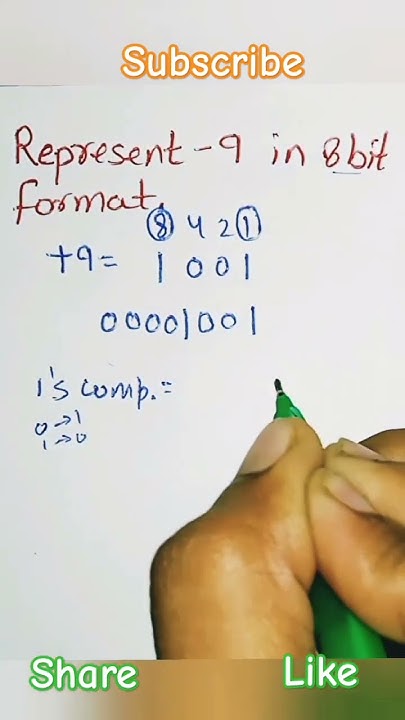 Subscribe
Represent -9 in 8bit
format.
8 4 2 1
+9= 1 0 0 1
00001001
1's comp.=
0→1
1→0
Share
Like